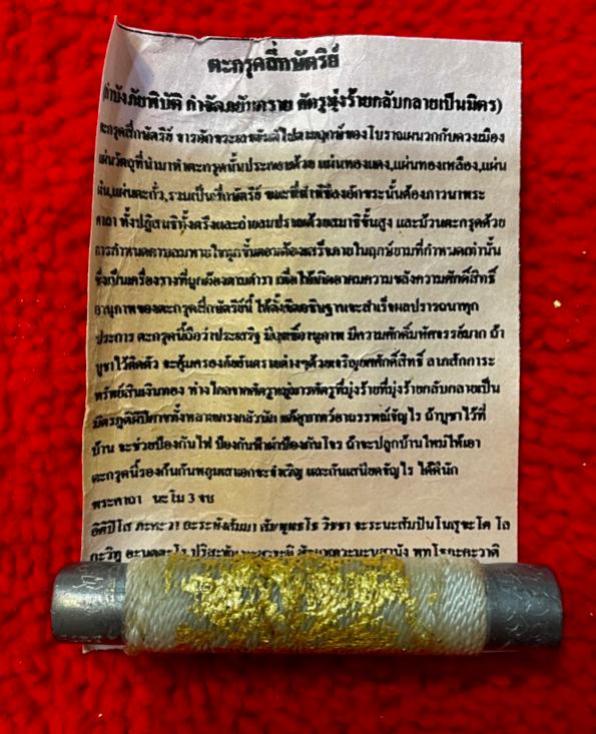 ตะกรุดสี่กษัตริย์
กำบังภัยพิบัติ กำจัดภยันตราย ศัตรูมุ่งร้ายกลับกลายเป็นมิตร)
ตะกรุดสี่กษัตริย์ จารอักขระเลขยันต์ไปตามฤกษ์ของโบราณผนวกกับดวงเมือง
แผ่นวัตถุที่นำมาทำตะกรุดนั้นประกอบด้วย แผ่นทองแดง,แผ่นทองเหลือง,แผ่น
เงิน,แผ่นตะกั่ว,รวมเป็นสี่กษัตริย์ อักขระนั้นต้องภาวนาพระ
คาถา ด้วยสมาธิชั้นสูง และม้วนตะกรุดด้วย
การกำหนดตามลมหายใจ ต้องเสร็จภายในฤกษ์ยามที่กำหนดเท่านั้น
ซึ่งเป็นเครื่องรางที่ถูกต้องตามตำรา เพื่อให้เกิด ความขลังความศักดิ์สิทธิ์
อานุภาพของตะกรุดสี่กษัตริย์นี้ ให้ตั้งจิตอธิษฐานจะสำเร็จผลปรารถนาทุก
ประการ ตะกรุดนี้ถือว่าประเสริฐ มีฤทธิ์อานุภาพ มีความศักดิ์มหัศจรรย์มาก ถ้า
บูชาไว้ติดตัว จะคุ้มครองภัยอันตรายต่างๆด้วยเจริญยศศักดิ์สิทธิ์ ลาภสักการะ
ทรัพย์สินเงินทอง ห่างไกลจากศัตรูหมู่มารศัตรูที่มุ่งร้ายที่มุ่งร้ายกลับกลายเป็น
มิตรภูติผีปีศาจทั้งหลายเกรงกลัวนัก แก้ อาถรรพณ์จัญไร ถ้าบูชาไว้ที่
บ้าน จะช่วยป้องกันไฟ ป้องกันฟ้าผ่าป้องกันโจร ถ้าจะปลูกบ้านใหม่ให้เอา
ตะกรุดนี้รองก้นก้นหลุมเสาเอกจะจำเริญ และกันเสนียดจัญไร ได้ดีนัก
พระคาถา นะโม 3 จบ
อิติปิโส ภะคะวา อะระหังสัมมา สัมพุทธโธ วิชชา จะระนะสัมปันโนสุขะโต โล
กะวิทู อะนุตตะโร ปุริสะทัมมะสาระถิ พุทโธภะคะวาติ